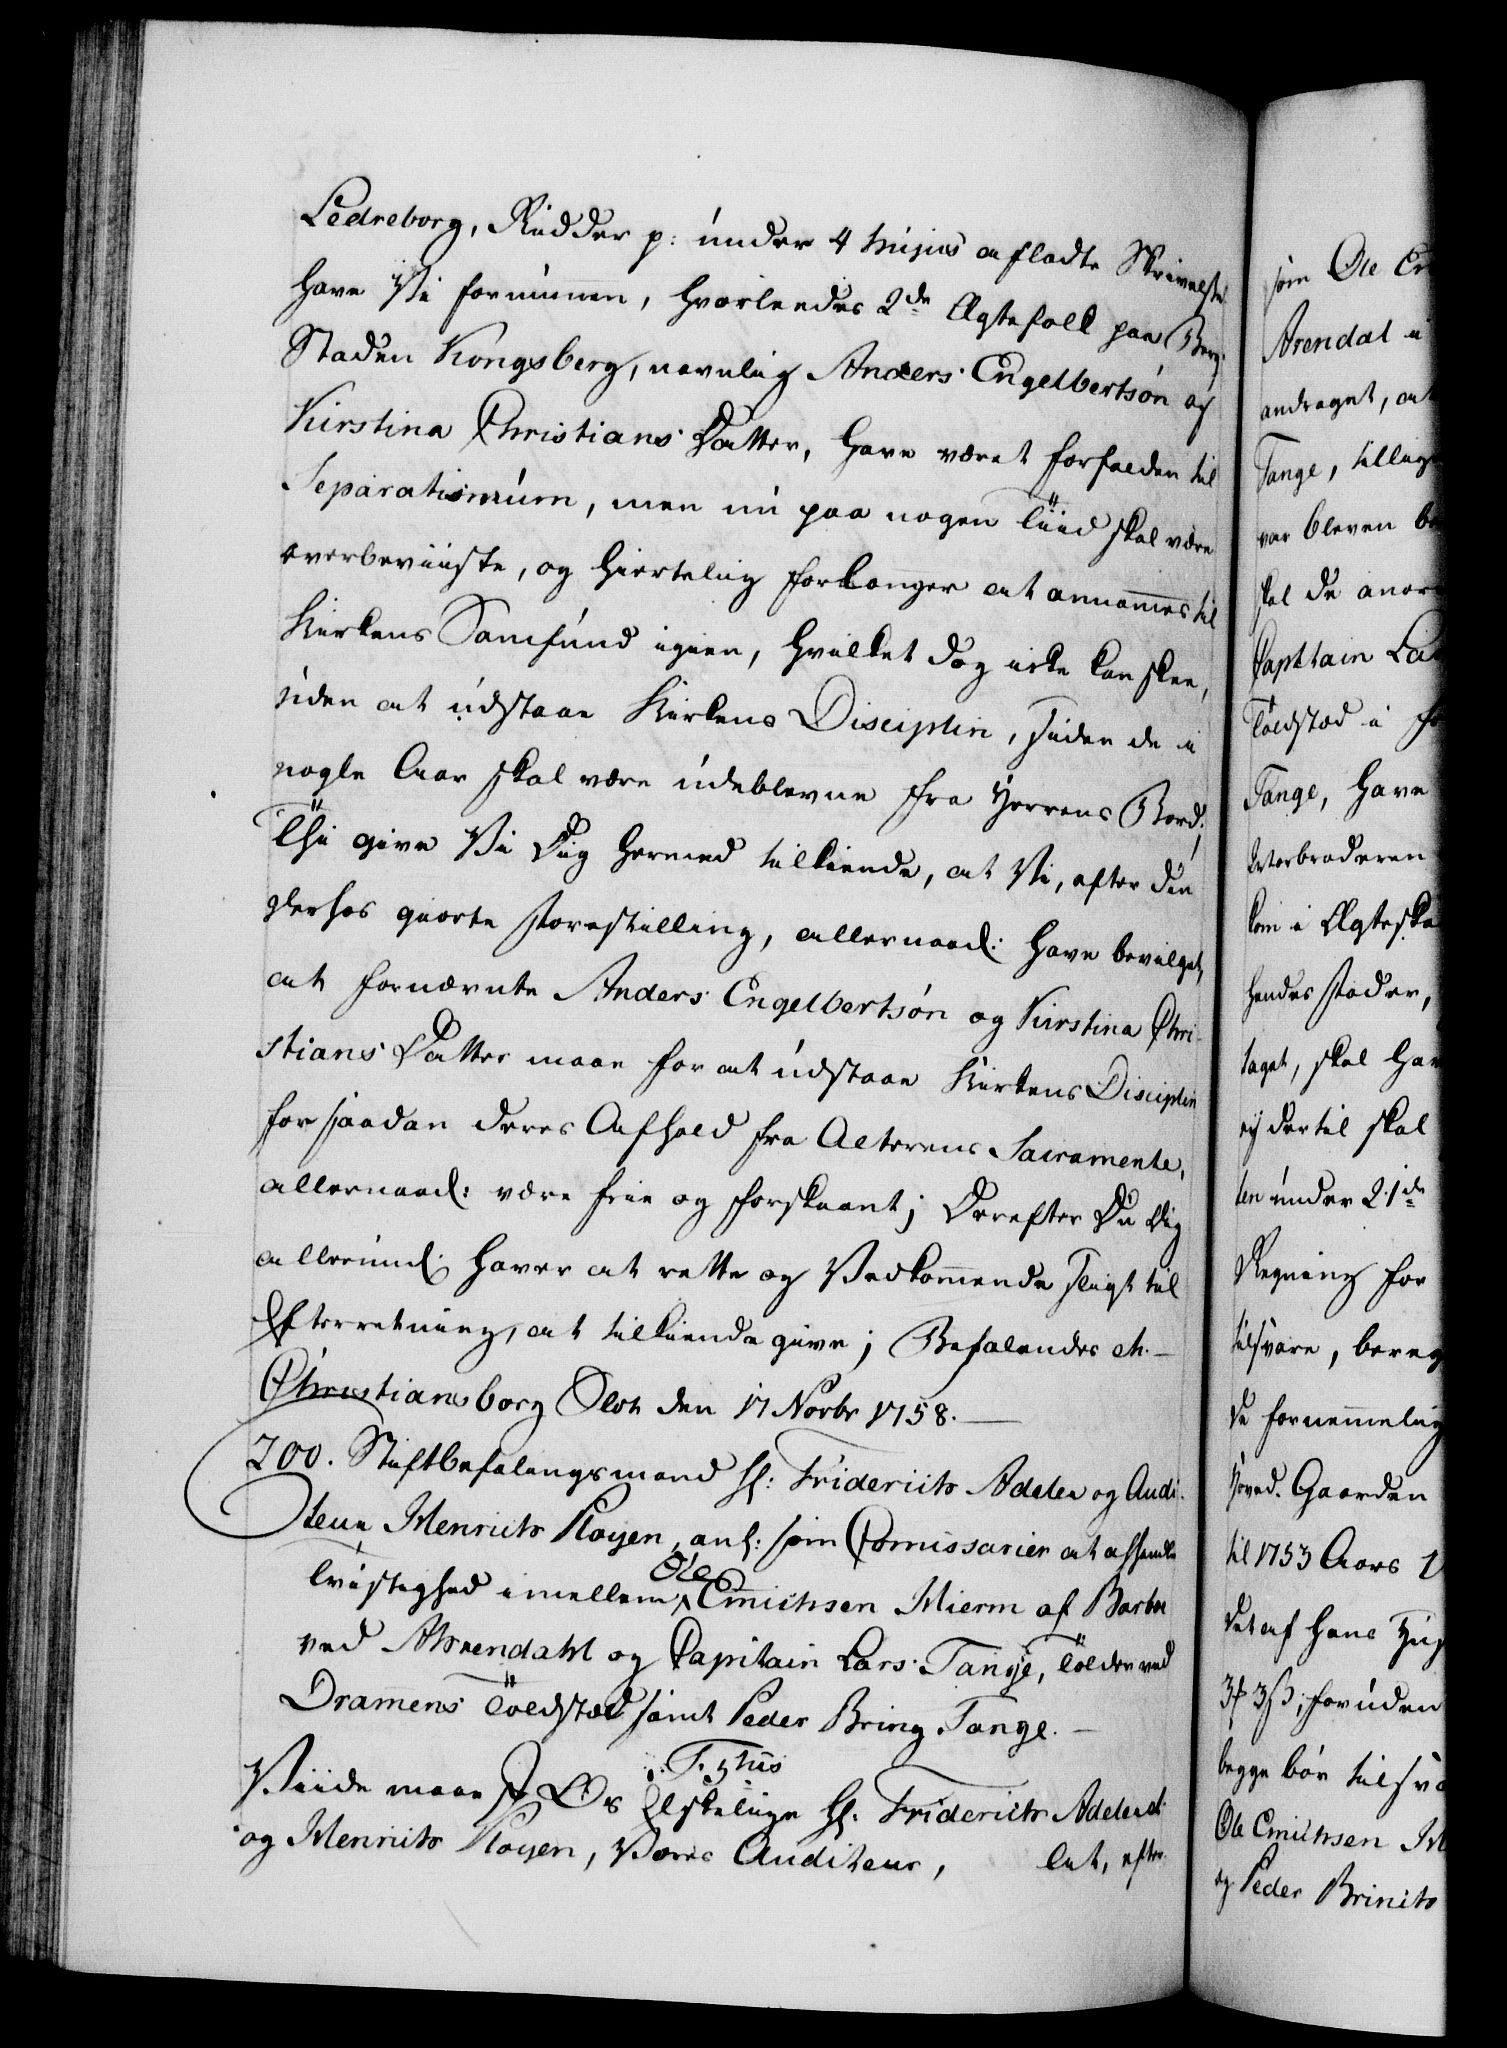 Ledreborg, Ridder p: under 4 hujus afladte Skrivelse
have Vi fornummen, hvorledes 2de Ægtefolk paa Berg-
Staden Kongsberg, navnlig Anders Engelbertsøn og
Kirstina Christians Datter, have været forfalden til
Separatismum, men nu paa nogen Tiid skal være
overbeviiste, og hiertelig forlanger at annammes til
Kirkens Samfund igien, hvilket dog icke kan skee,
uden at udstaae Kirkens Disciplin, siden de i
nogle Aar skal være udeblevne fra Herrens Bord;
Thi give Vi Dig hermed tilkiende, at Vi, efter din
derhos giorte Forestilling, allernaad: have bevilget,
at fornævnte Anders Engelbertsøn og Kirstina Chri-
stians Datter maae for at udstaae Kirkens Disciplin
for saadan deres Afhold fra Alterens Sacramente,
allernaad: være frie og forskaant; Derefter Du Dig
allerund: haver at rette og Vedkommende sligt til
Efterretning, at tilkiende give; Befalendes etc. —
Christiansborg Slot den 17 Novbr 1758. —
200. Stiftbefalingsmand H: Friderich Adeler og Audi-
teur Henrich Ployen, anl: som Comissarier at afhandle
Tvistighed imellem Ole Emichsen Hierm af Barboe
ved Ahrendahl og Capitain Lars Tange, Tolder ved
Dramens Toldsted samt Peder Bring Tange. —
Viide maae I Os Elskelige H: F. 5tus Friderich Adeler etc:
og Henrich Ployen, Vores Auditeur, lat, efter
som Ole Em
Arendal i
andraget, at
Tange, tillige
var bleven be
skal de anor
Capttain La
Toldsted i
Tange, have
Morbroderen
kom i Ægteska
hendes Fader,
taget, skal ha
ej dertil skal
ten under 21de
Regning for
tilsvare, bereg
de fornemmelig
hoved. Gaarden
til 1753 Aars
det af hans
3 ß; foruden
begge bør tilsva
Ole Emichsen H
og Peder Brinch